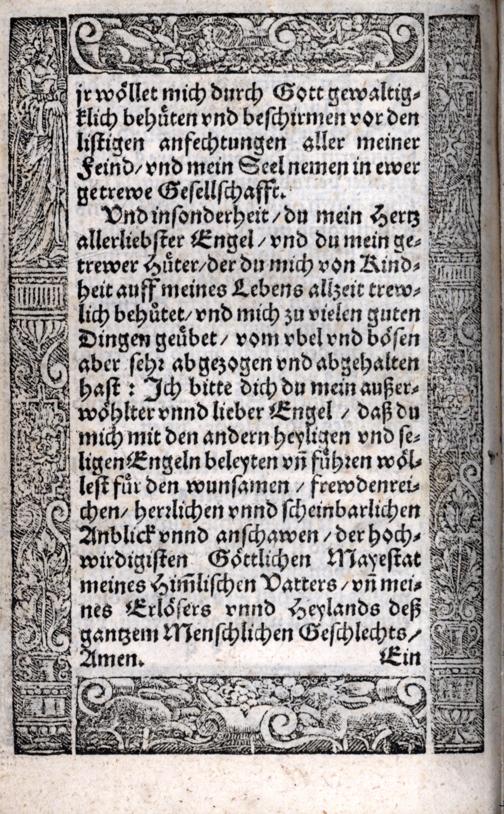 jr wöllet mich durch Gott gewaltig⸗
klich behüten vnd beschirmen vor den
listigen anfechtungen aller meiner
Feind/ vnd mein Seel nemen in ewer
getrewe Gesellschafft.
Vnd insonderheit/ du mein Hertz
allerliebster Engel/ vnd du mein ge⸗
trewer Hüter/ der du mich von Kind⸗
heit auff meines Lebens allzeit trew⸗
lich behütet/ vnd mich zu vielen guten
Dingen geübet/ vom vbel vnd bösen
aber sehr abgezogen vnd abgehalten
hast: Ich bitte dich du mein außer⸗
wöhlter vnnd lieber Engel/ daß du
mich mit den andern heyligen vnd se⸗
ligen Engeln beleyten vn̄ führen wöl⸗
lest für den wunsamen/ frewdenrei⸗
chen/ herrlichen vnnd scheinbarlichen
Anblick vnnd anschawen/ der hoch⸗
wirdigisten Göttlichen Mayestat
meines Him̄lischen Vatters/ vn̄ mei⸗
nes Erlösers vnnd Heylands deß
gantzem Menschlichen Geschlechts/
Amen. Ein